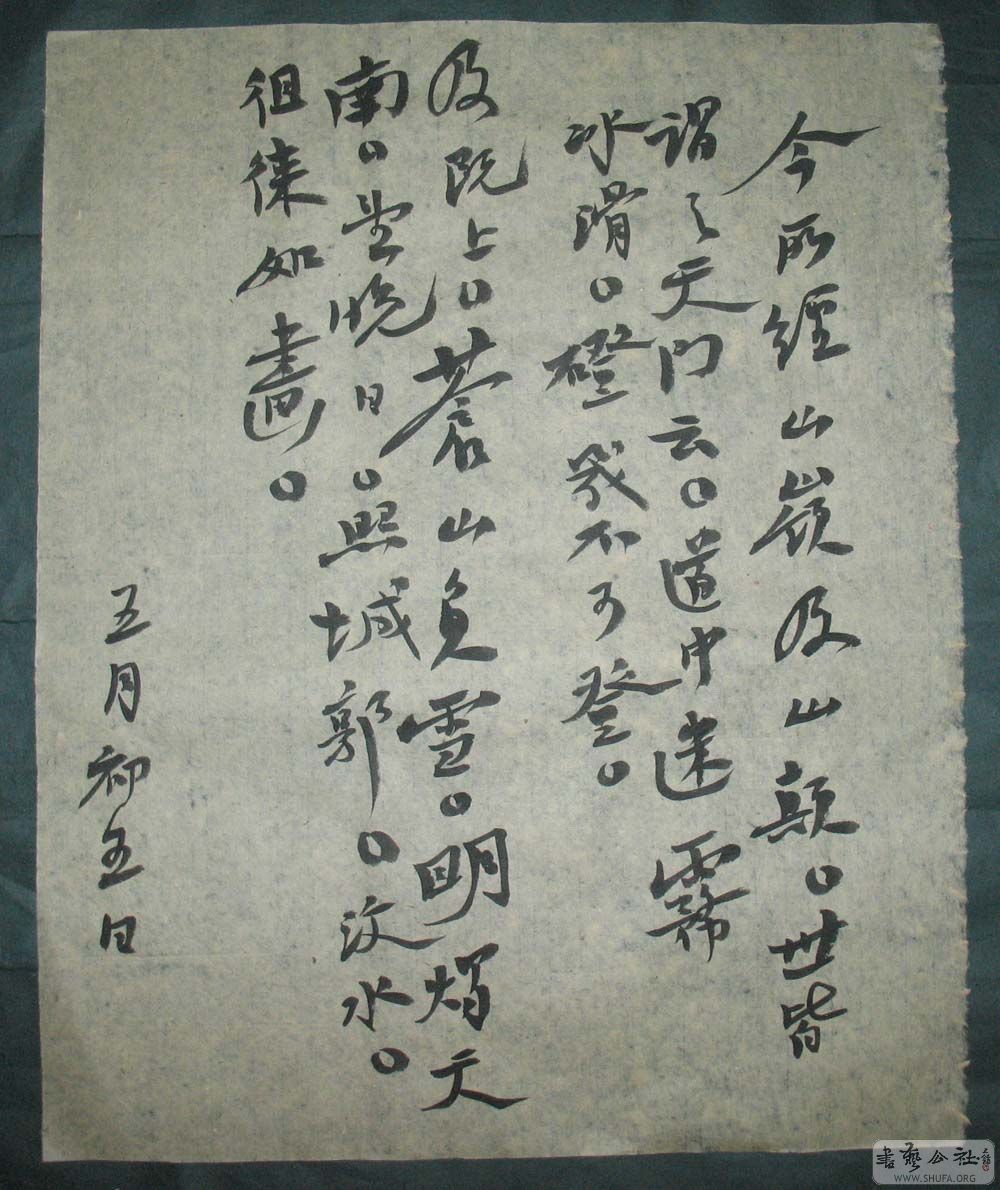 今所經山嶺及山顛。世皆
謂之天门云。道中迷霧
冰滑。磴幾不可登。
及既上。蒼山負雪。明燭天
南。望晚日。照城郭。汶水。
徂徠如畫。
五月初五日
書藝公社
WWW.SHUFA.ORG